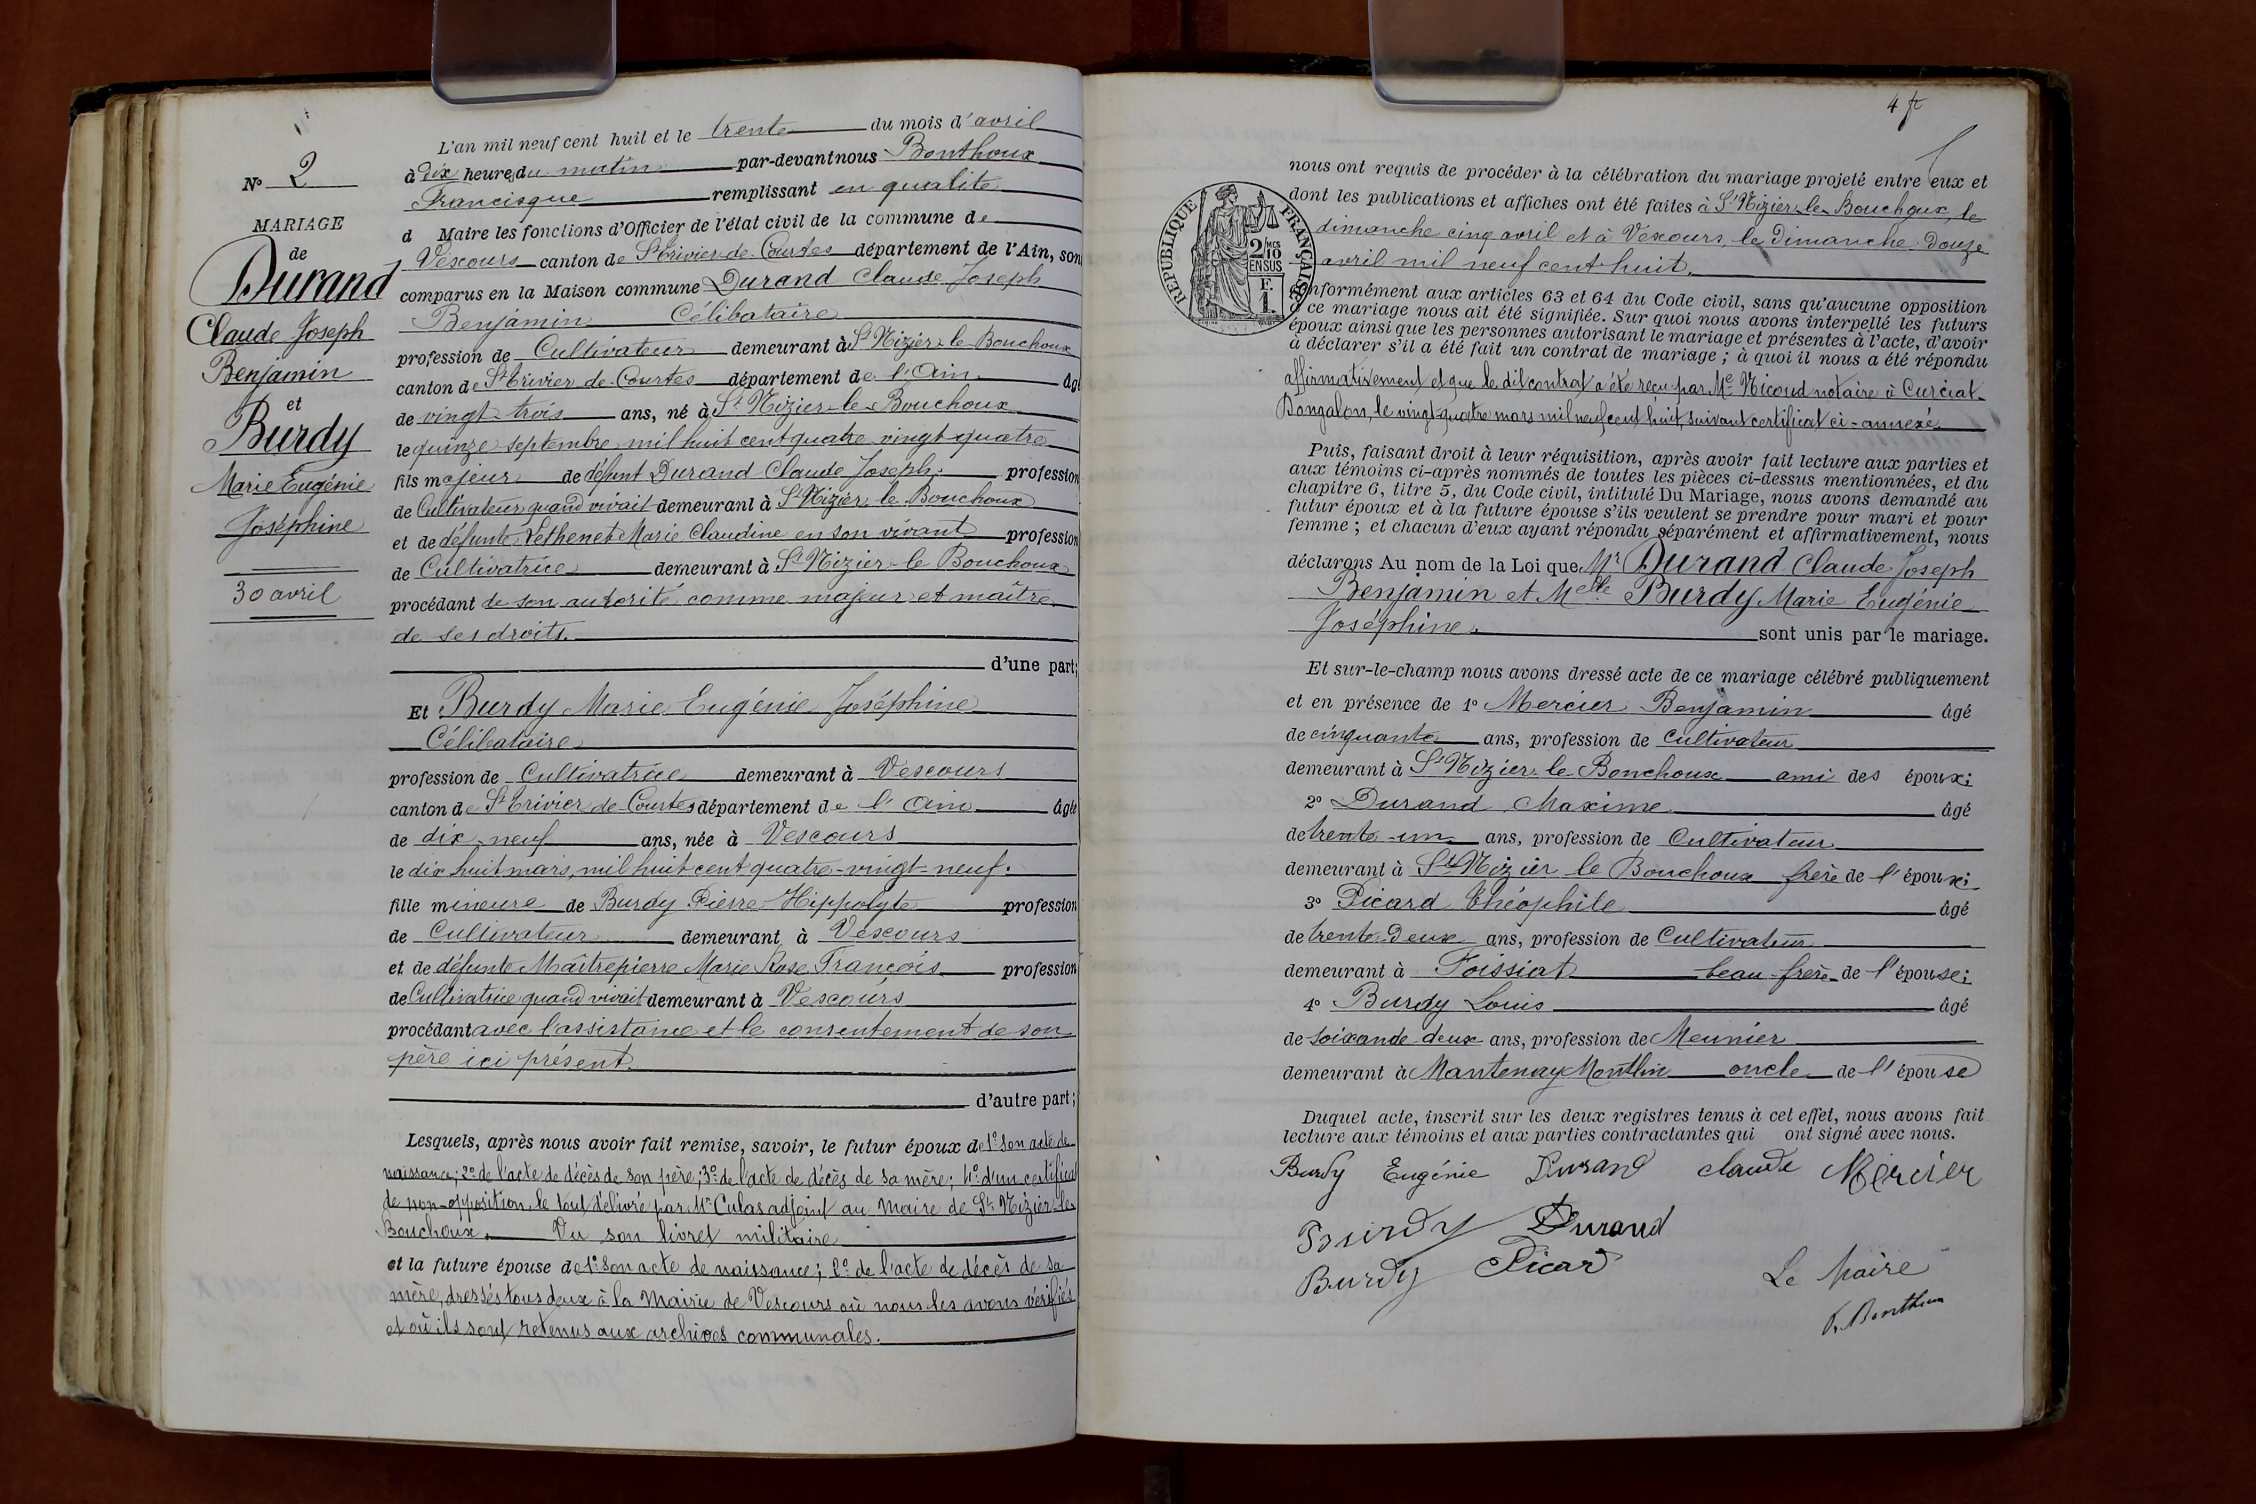 N° 2
MARIAGE
de
Durand
Claude Joseph
Benjamin
et
Burdy
Marie Eugénie
Joséphine
30 avril
L'an mil neuf cent huit et le trente du mois d'avril
à dix heures du matin par-devant nous Bonthoux
Francisque remplissant en qualité
d Maire les fonctions d'Officier de l'état civil de la commune de
Vescours canton de St Trivier-de-Courtes département de l'Ain, son
comparus en la Maison commune Durand Claude Joseph
Benjamin Célibataire
profession de Cultivateur demeurant à St Nizier-le-Bouchoux
canton de St Trivier-de-Courtes département de l'Ain âgé
de vingt-trois ans, né à St Nizier-le-Bouchoux
le quinze septembre mil huit cent quatre vingt-quatre
fils majeur de défunt Durand Claude Joseph profession
de Cultivateur quand vivait demeurant à St Nizier le Bouchoux
et de défunte Pethenet Marie Claudine en son vivant profession
de Cultivatrice demeurant à St Nizier-le Bouchoux
procédant de son autorité comme majeur et maître
de ses droits.
d'une part;
Et Burdy Marie Eugénie Joséphine
Célibataire
profession de Cultivatrice demeurant à Vescours
canton de St Trivier-de-Courtes département de l'Ain âgée
de dix-neuf ans, née à Vescours
le dix huit mars, mil huit cent quatre-vingt-neuf.
fille mineure de Burdy Pierre-Hippolyte profession
de Cultivateur demeurant à Vescours
et de défunte Maîtrepierre Marie Rose François profession
de Cultivatrice quand vivait demeurant à Vescours
procédant avec l'assistance et le consentement de son
père ici présent
d'autre part;
Lesquels, après nous avoir fait remise, savoir, le futur époux de 1° son acte de
naissance; 2° de l'acte de décès de son père; 3° de l'acte de décès de sa mère; 4° d'un certificat
de non-opposition, le tout délivré par Mr Culas adjoint au Maire de St Nizier-le-
Bouchoux. Vu son livret militaire
et la future épouse de 1° son acte de naissance; 2° de l'acte de décès de sa
mère, dressés tous deux à la Mairie de Vescours où nous les avons vérifiés
et où ils sont retenus aux archives communales.
4 ft
nous ont requis de procéder à la célébration du mariage projeté entre eux et
dont les publications et affiches ont été faites à St Nizier-le-Bouchoux, le
dimanche cinq avril et à Vescours, le Dimanche Douze
avril mil neuf cent huit.
RÉPUBLIQUE FRANÇAISE
2/10 MCS
EN SUS
F.
1.
onformément aux articles 63 et 64 du Code civil, sans qu'aucune opposition
ce mariage nous ait été signifiée. Sur quoi nous avons interpellé les futurs
époux ainsi que les personnes autorisant le mariage et présentes à l'acte, d'avoir
à déclarer s'il a été fait un contrat de mariage; à quoi il nous a été répondu
affirmativement et que le dit contrat a été reçu par Me Nicoud notaire à Curciat-
Dongalon, le vingt-quatre mars mil neuf cent huit, suivant certificat ci-annexé
Puis, faisant droit à leur réquisition, après avoir fait lecture aux parties et
aux témoins ci-après nommés de toutes les pièces ci-dessus mentionnées, et du
chapitre 6, titre 5, du Code civil, intitulé Du Mariage, nous avons demandé au
futur époux et à la future épouse s'ils veulent se prendre pour mari et pour
femme; et chacun d'eux ayant répondu séparément et affirmativement, nous
déclarons Au nom de la Loi que Mr Durand Claude Joseph
Benjamin et Melle Burdy Marie Eugénie
Joséphine. sont unis par le mariage.
Et sur-le-champ nous avons dressé acte de ce mariage célébré publiquement
et en présence de 1° Mercier Benjamin âgé
de cinquante ans, profession de Cultivateur
demeurant à St Nizier-le Bouchoux ami des époux;
2° Durand Maxime âgé
de trente-un ans, profession de Cultivateur
demeurant à St Nizier le Bouchoux frère de l'époux;
3° Picard Théophile âgé
de trente-deux ans, profession de Cultivateur
demeurant à Foissiat beau-frère de l'épouse;
4° Burdy Louis âgé
de soixande-deux ans, profession de Meunier
demeurant à Mantenay Montlin oncle de l'épouse
Duquel acte, inscrit sur les deux registres tenus à cet effet, nous avons fait
lecture aux témoins et aux parties contractantes qui ont signé avec nous.
Burdy Eugénie Durand Claude Mercier
Burdy Durand
Burdy Picard
Le Maire
F. Bonthoux